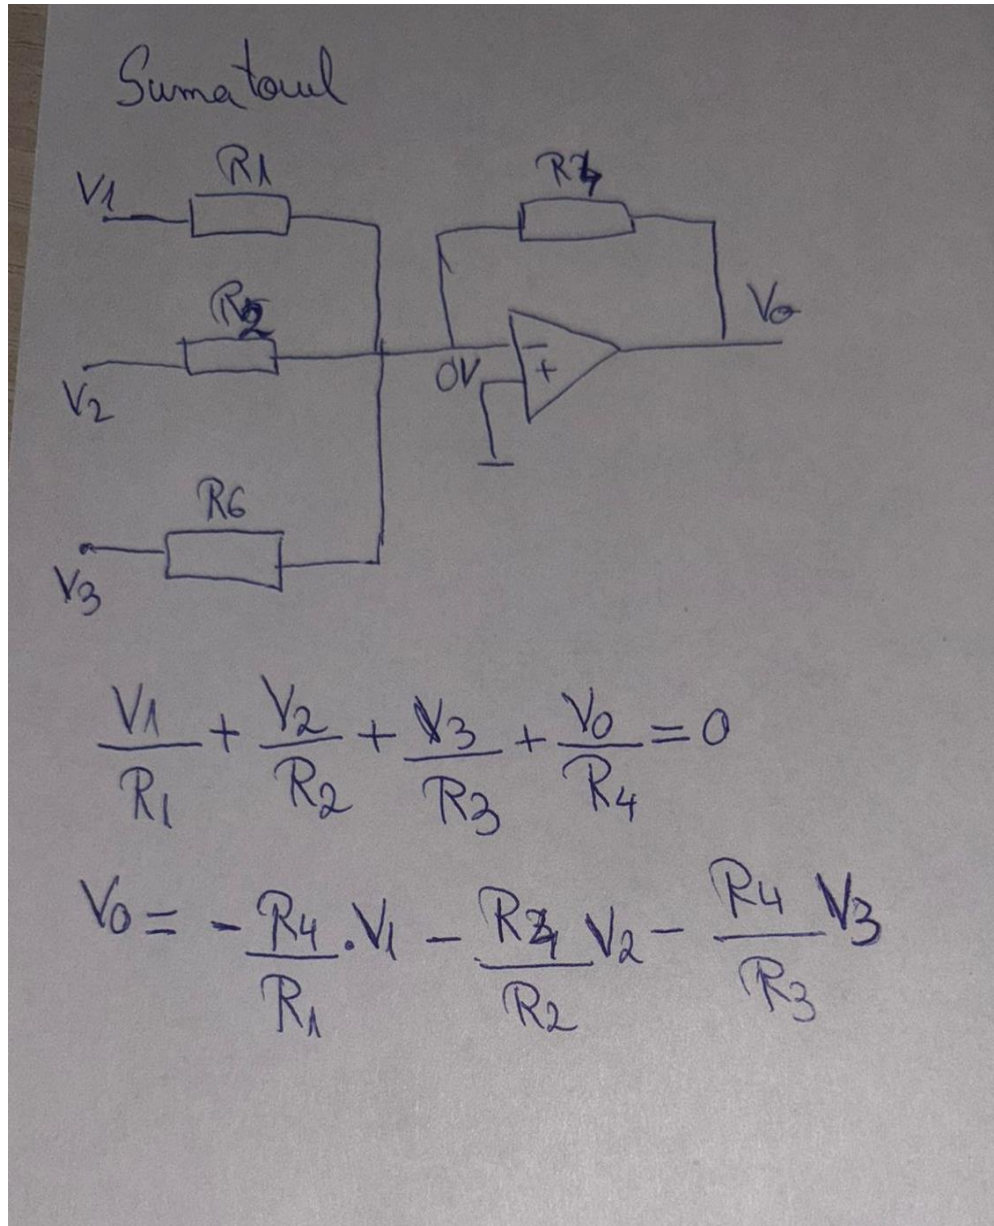 Sumatorul
R1 R4
V1
R2 V0
V2 0V - +
R6
V3
V1/R1 + V2/R2 + V3/R3 + V0/R4 = 0
V0 = - R4/R1 . V1 - R4/R2 V2 - R4/R3 V3